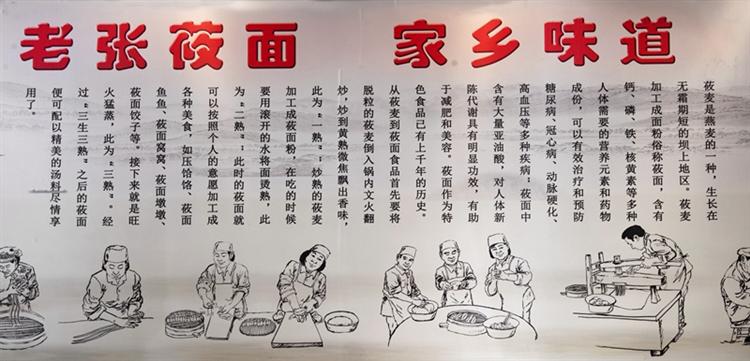 老张莜面 家乡味道
莜麦是燕麦的一种，生长在
无霜期短的坝上地区。莜麦
加工成面粉俗称莜面，含有
钙、磷、铁、核黄素等多种
人体需要的营养元素和药物
成份，可以有效治疗和预防
糖尿病、冠心病、动脉硬化、
高血压等多种疾病；莜面中
含有大量亚油酸，对人体新
陈代谢具有明显功效，有助
于减肥和美容。莜面作为特
色食品已有上千年的历史。
从莜麦到莜面食品首先要将
脱粒的莜麦倒入锅内文火翻
炒，炒到黄熟微焦飘出香味，
此为“一熟”；炒熟的莜麦
加工成莜面粉，在吃的时候
要用滚开的水将面烫熟，此
为“二熟”；此时的莜面就
可以按照个人的意愿加工成
各种美食，如压饸饹、莜面
鱼鱼、莜面窝窝、莜面墩墩、
莜面饺子等。接下来就是旺
火猛蒸，此为“三熟”。经
过“三生三熟”之后的莜面
便可配以精美的汤料尽情享
用了。